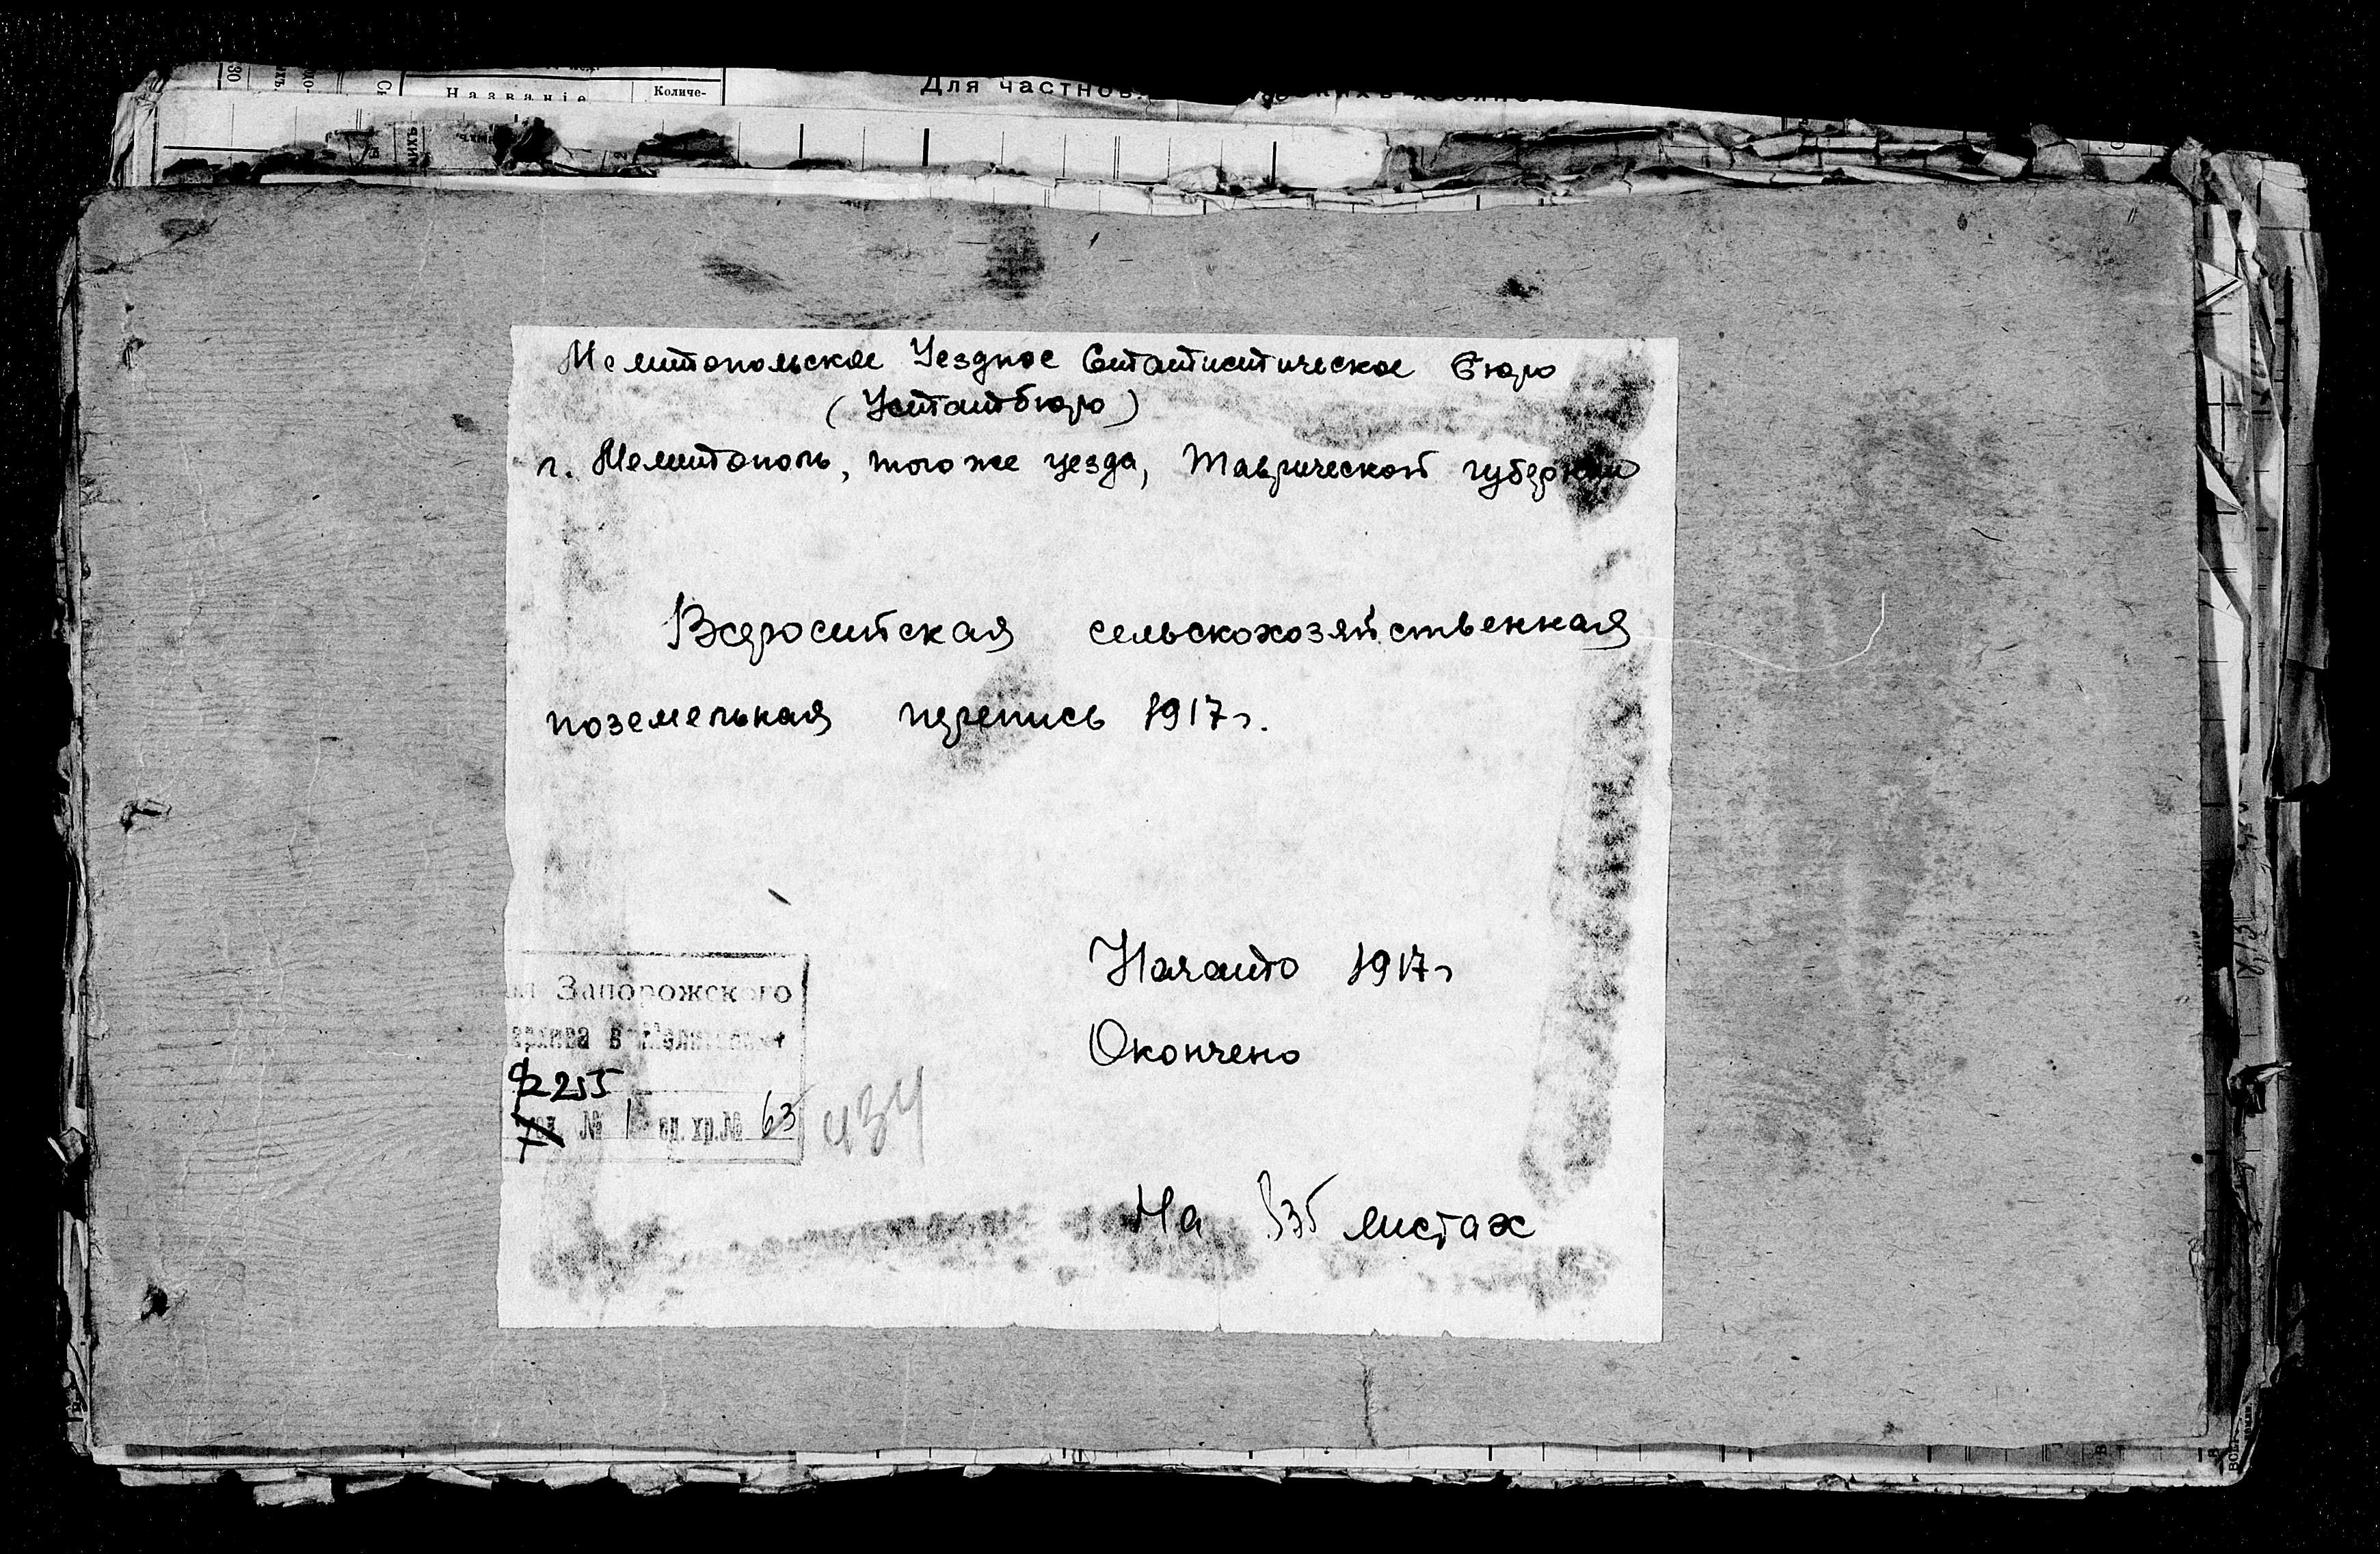 Названіе
Количе-
Для частнов
Мелитопольское Уездное Статистическое бюро
(Устатбюро)
г. Мелитополь, того же уезда, Таврической губернии
Всероссийская сельскохозяйственная
поземельная перепись 1917г.
Начато 1917г
Окончено
Запорожского
архива в Мелитополе
Ф 255
№ 1 ед. хр. № 63
434
На листах